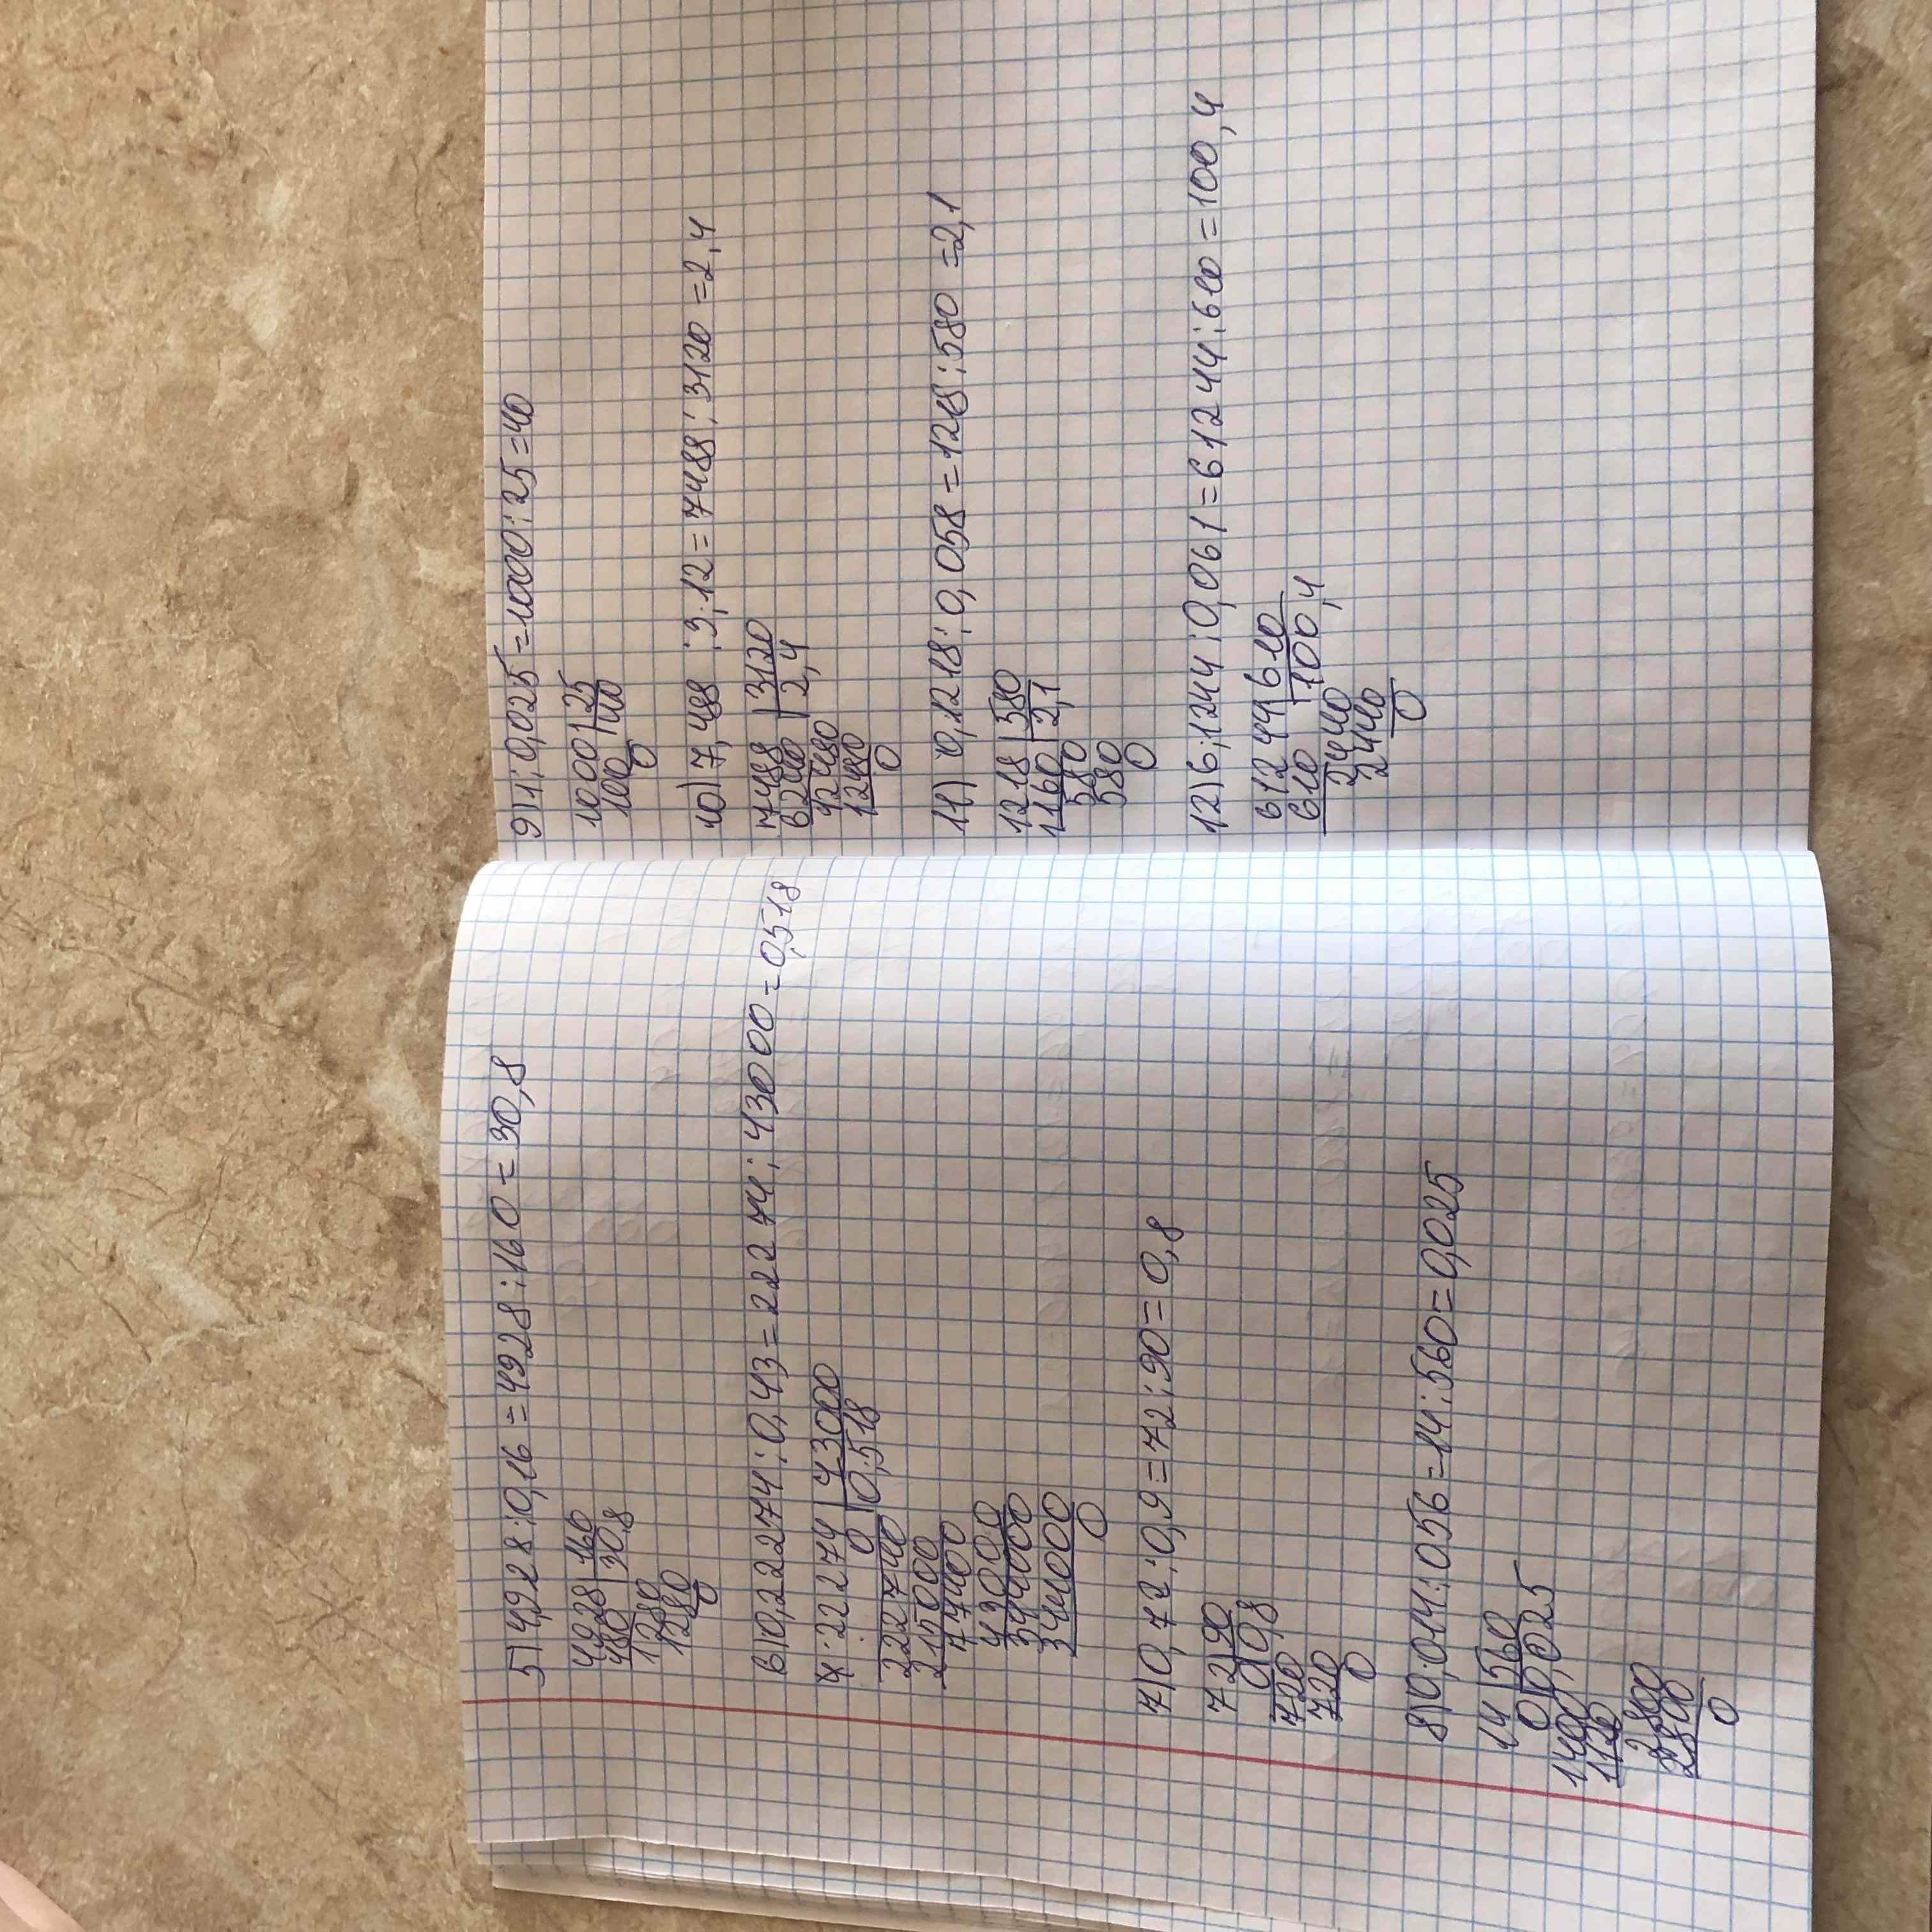 5) 4,928:0,16=4928:160=30,8
4928 |160
480 30,8
1280
1280
0
6) 0,22274:0,43=22274:43000=0,518
22274 |43000
0 0,518
222740
215000
77400
43000
344000
344000
0
7) 0,72:0,9=72:90=0,8
72 |90
0 0,8
720
720
0
8) 0,014:056=14:560=0,025
14 |560
0 0,025
1400
1120
2800
2800
0
9) 1:0,025=1000:25=40
1000 |25
100 40
0
10) 7,488:3,12=7488:3120=2,4
7488 |3120
6240 2,4
12480
12480
0
11) 0,1218:0,058=1218:580=2,1
1218 |580
1160 2,1
580
580
0
12) 6,1244:0,061=61244:610=100,4
61244 610
610 100,4
2440
2440
0